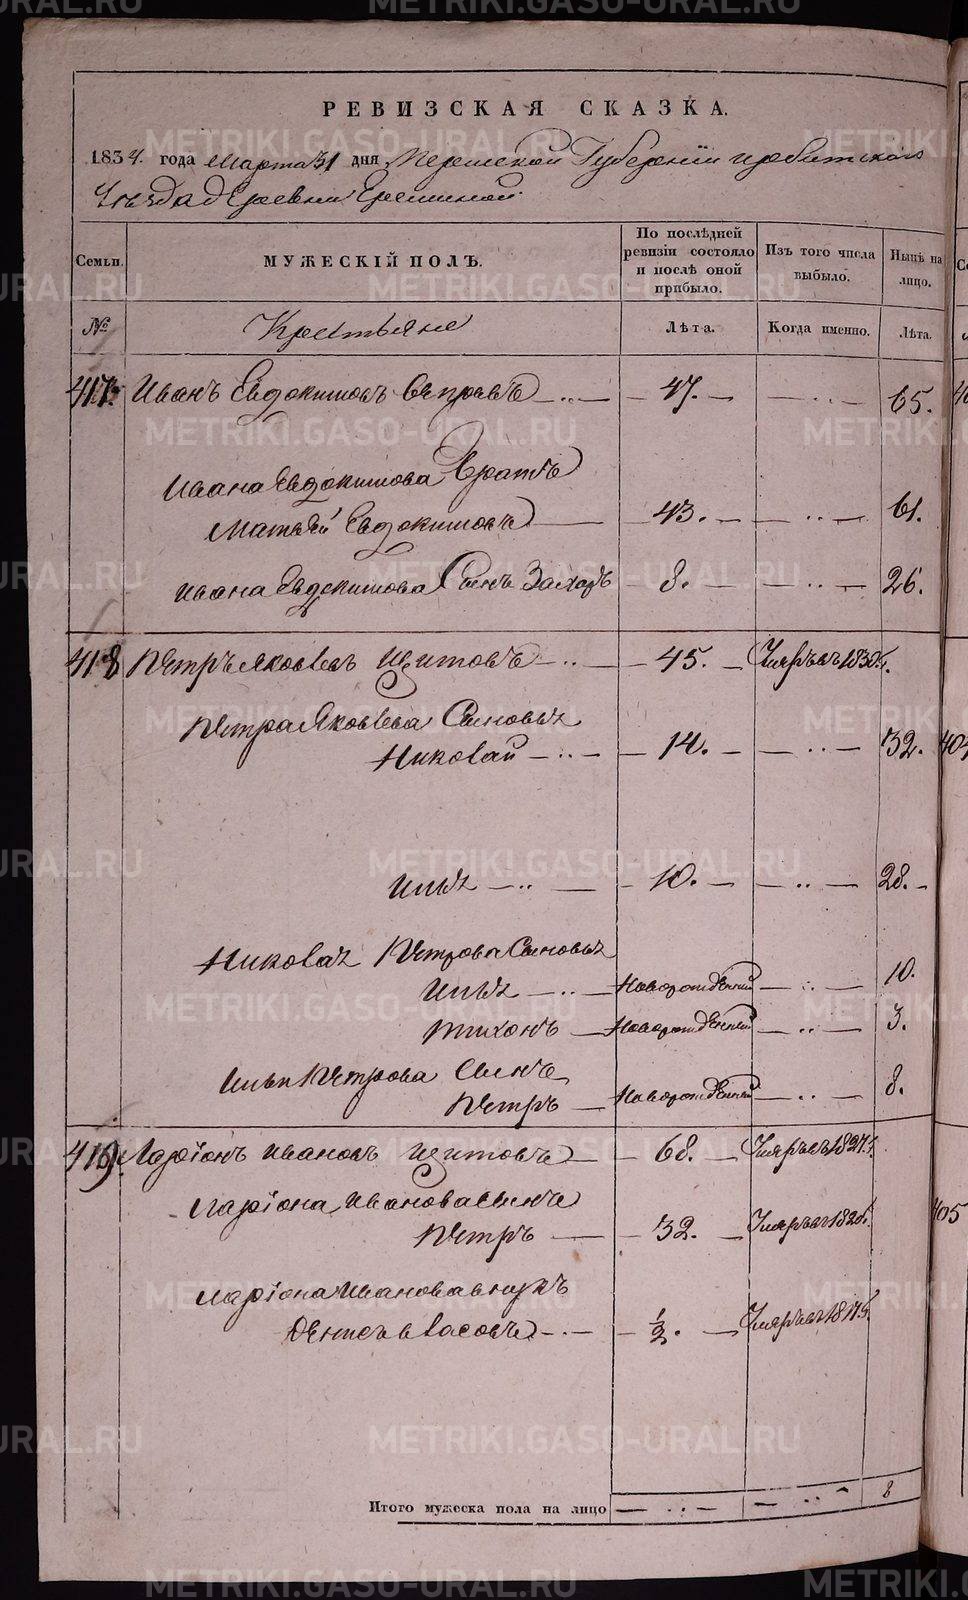 РЕВИЗСКАЯ СКАЗКА.
1834. года Марта 31 дня Пермской Губернiи ирбитского
Уѣзда деревни Ереминой
Семьи. МУЖЕСКIЙ ПОЛЪ. По послѣдней ревизiи состояло и послѣ оной прибыло. Изъ того числа выбыло. Нынѣ на лицо.
№ Крестьяне Лѣта. Когда именно. Лѣта.
417. Иванъ Евдокимовъ 47. 65.
Ивана Евдокимова Братъ
Матвѣй Евдокимовъ 43. 61.
Ивана Евдокимова Сынъ Захаръ 8. 26.
418 Петръ Яковлевъ Щитовъ 45. Умръ въ 1830г.
Петра Яковлева Сыновья
Николай 14. 32.
Илья 10. 28.
Николая Петрова Сыновья
Илья Новорожденный 10.
Тихонъ Новорожденный 3.
Ильи Петрова Сынъ
Петръ Новорожденный 8.
419. Ларiонъ Ивановъ Щитовъ 68. Умръ въ 1827г.
Ларiона Иванова Сынъ
Петръ 32. Умръ въ 1826г.
Ларiона Иванова внукъ
Денисъ Власовъ 1/2. Умръ въ 1817г.
Итого мужеска пола на лицо 8
404
405
METRIKI.GASO-URAL.RU